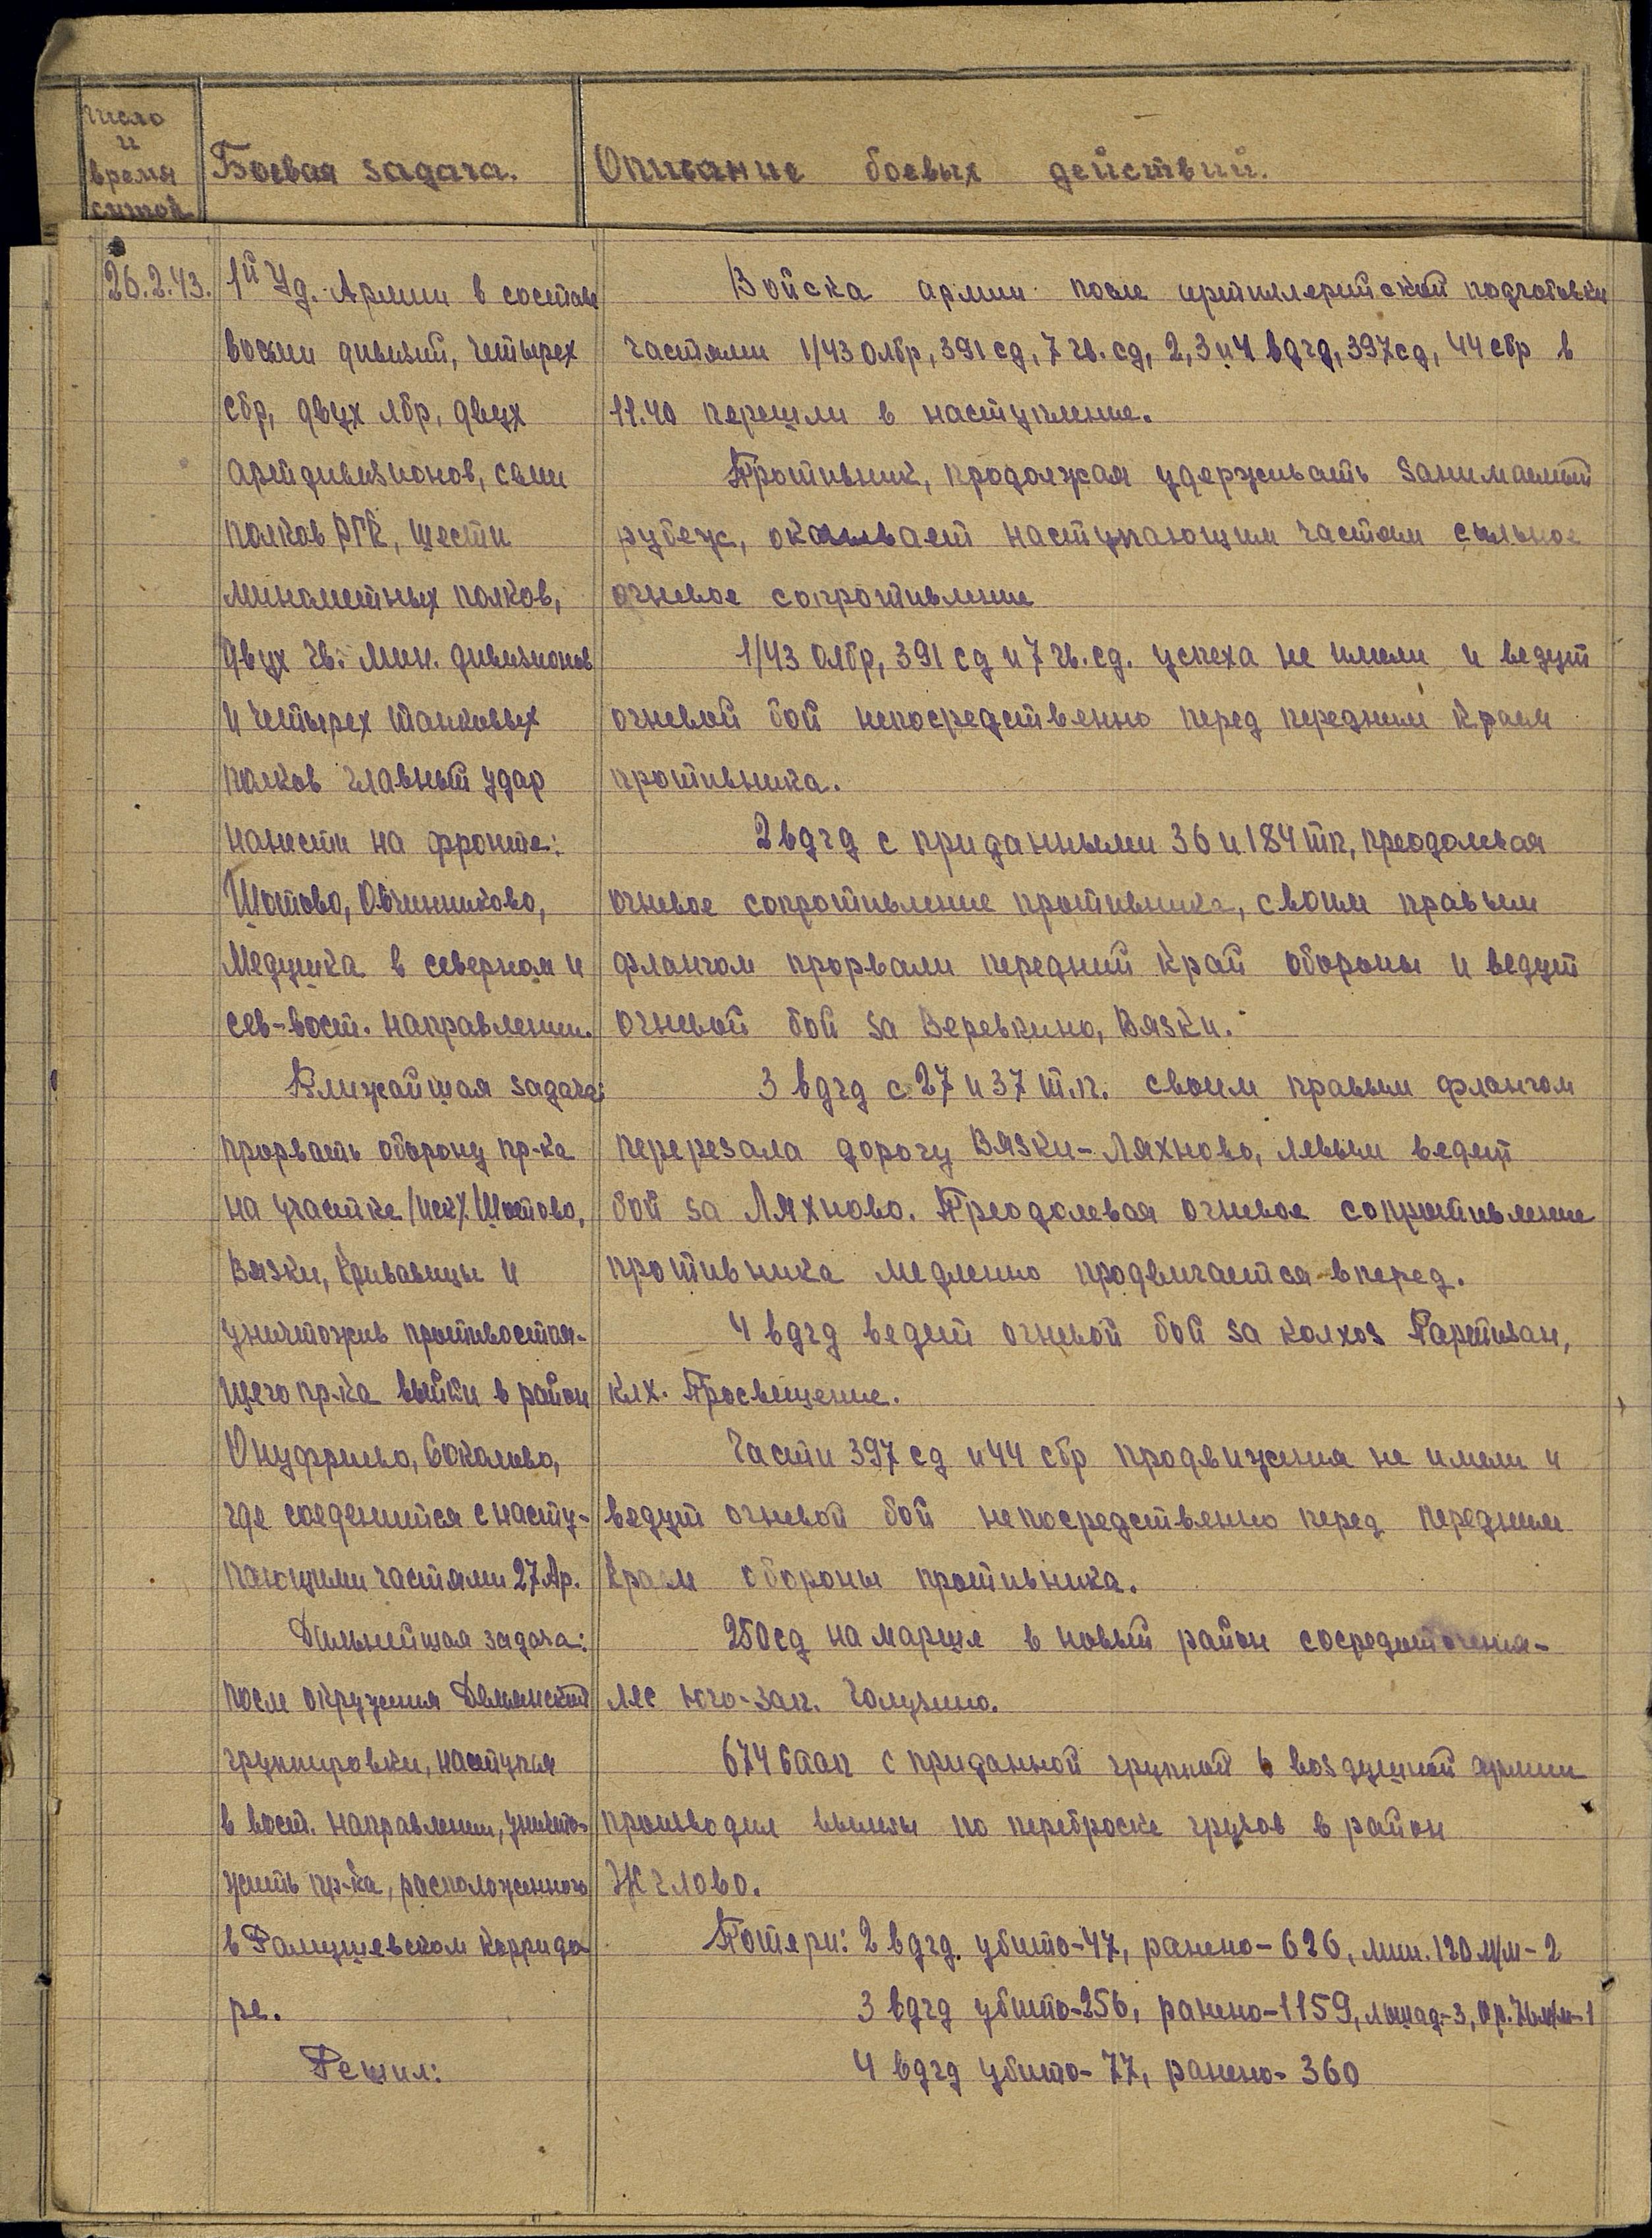 Число
и
время
Боевая задача.
Описание боевых действий.
26.2.43.
1й Уд. Армии в составе
восьми дивизий, четырех
сбр, двух лбр, двух
артдивизионов, семи
полков РГК, шести
минометных полков,
двух гв. мин. дивизионов
и четырех танковых
полков главный удар
нанести на фронте:
Шотово, Овчинниково,
Медушка в северном и
сев-вост. направлении.
Ближайшая задача:
прорвать оборону пр-ка
на участке /иск/ Шотово,
Вязки, Кривавицы и
уничтожив противостоя-
щего пр-ка выйти в район
Онуфриево, Соколово,
где соединится с насту-
пающими частями 27 Ар.
Дальнейшая задача:
после окружения Демянской
группировки, наступая
в вост. направлении, уничто-
жить пр-ка, расположенного
в Рамушевском корридо
ре.
Решил:
Войска армии после артиллерийской подготовки
частями 1/43 олбр, 391 сд, 7 гв. сд, 2, 3 и 4 вдгд, 397 сд, 44 сбр в
11.40 перешли в наступление.
Противник, продолжая удерживать занимаемый
рубеж, оказывает наступающим частям сильное
огневое сопротивление
1/43 олбр, 391 сд и 7 гв. сд. успеха не имели и ведут
огневой бой непосредственно перед передним краем
противника.
2 вдгд с приданными 36 и 184 тп, преодолевая
огневое сопротивление противника, своим правым
флангом прорвали передний край обороны и ведут
огневой бой за Веревкино, Вязки.
3 вдгд с 27 и 37 т.п. своим правым флангом
перерезала дорогу Вязки-Ляхново, левым ведет
бой за Ляхново. Преодолевая огневое сопротивление
противника медленно продвигается вперед.
4 вдгд ведет огневой бой за колхоз Партизан,
клх. Просвещение.
Части 397 сд и 44 сбр продвижения не имели и
ведут огневой бой непосредственно перед передним
краем обороны противника.
250 сд на марше в новый район сосредоточения-
лес юго-зап. Голузино.
674 баап с приданной группой 6 воздушной армии
производил вылеты по переброске грузов в район
Жглово.
Потери: 2 вдгд. убито-47, ранено-626, мин. 120 м/м-2
3 вдгд убито-256, ранено-1159, лошад.-3, Ор. м/м-1
4 вдгд убито-77, ранено-360